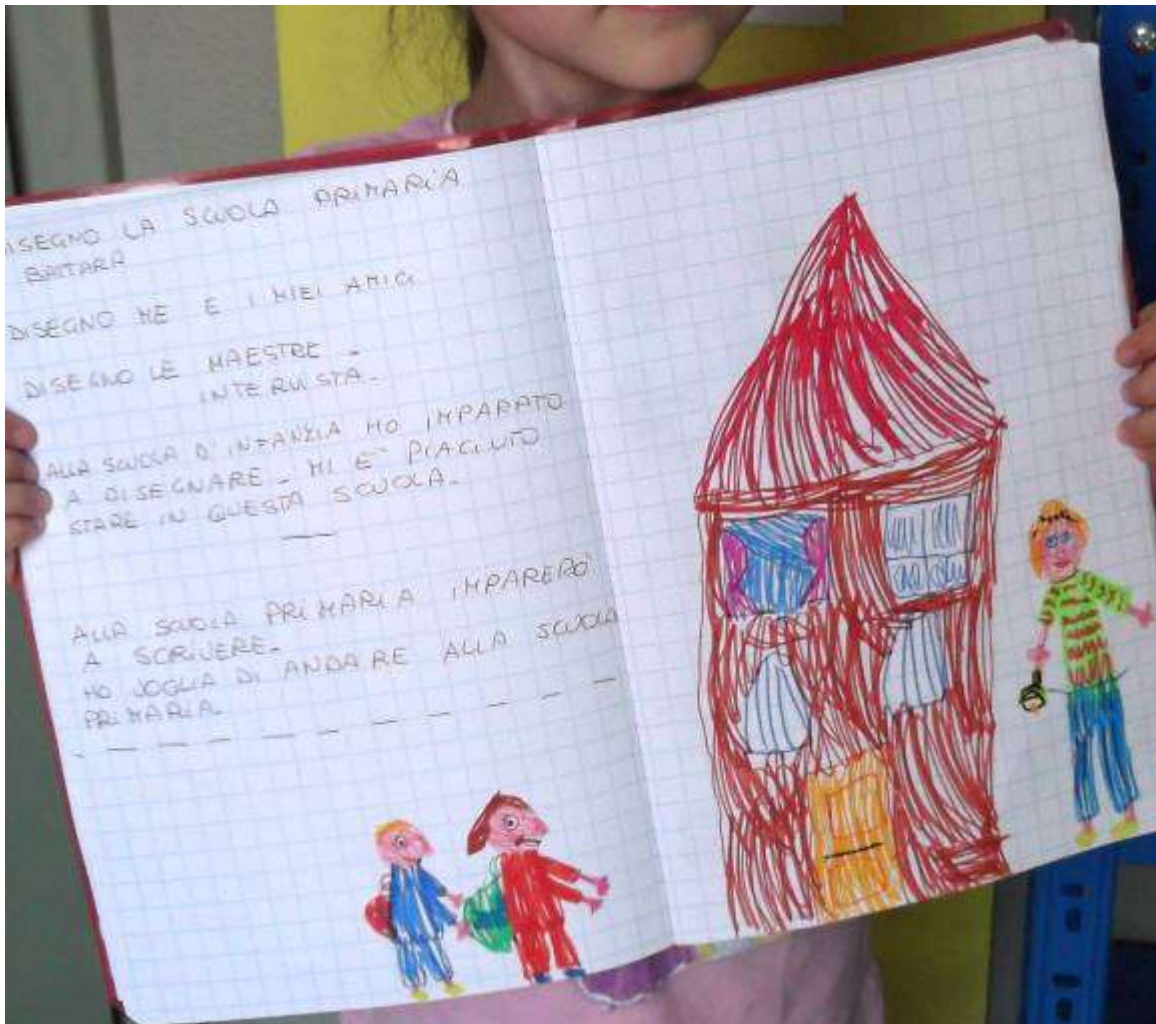 DISEGNO LA SCUOLA PRIMARIA
BAITARA
DISEGNO ME E I MIEI AMICI
DISEGNO LE MAESTRE -
INTERVISTA -
ALLA SCUOLA D'INFANZIA HO IMPARATO
A DISEGNARE - MI E' PIACIUTO
STARE IN QUESTA SCUOLA -
ALLA SCUOLA PRIMARIA IMPARERÒ
A SCRIVERE -
HO VOGLIA DI ANDARE ALLA SCUOLA
PRIMARIA -